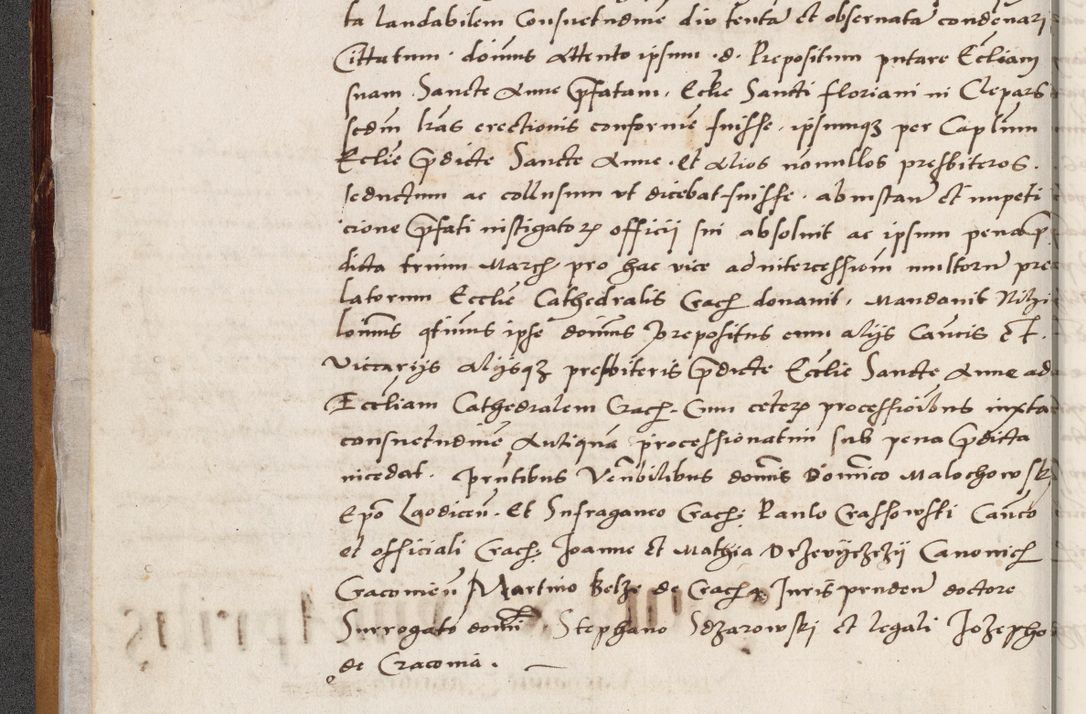 ta laudabilem Consuetudinē diu tenta et obseruata condenari
Cittatum. doīnus Attento ipsum .d. Prepositum putare Eccliam
suam. Sancte Anne p̄fatam. Eclīe Sancti floriani in Clepars
scdm lr̄as erectionis conformē fuisse. ipsumqꝫ per Caplum
Eclīe p̄dicte Sancte Anne. Et Alios nōnullos presbiteros.
seductum ac collusum vt dicebat fuisse. ab instan̄ et impeti
cione p̄fati instigatorꝝ officij sui absoluit ac ipsum pena p̄
dicta trium March pro hac vice ad intercessionī multorū pre
latorum Ecclīe Cathedralis Crach donauit. Mandauit Nihi
lomīus qtinus ipse doīnus Prepositus cum alijs Cancis Et.
Viccarijs Alijsqꝫ presbiteris p̄dicte Ecclīe Sancte Anne ad
Eccliam Cathedralem Crach. Cum ceterꝝ processioībus iuxta
consuetudinē Antiquā processionatim sub pena p̄dicta
incedat. Prntibus Venbilibus doīnis Doīnico Malochowskj
Epō Laodicen̄. Et Suffraganeo Crach: Paulo Crassowski Canco
et officiali Crach: Joanne Et Mathia Drzewijczij Canonich
Cracouien̄ Martino Belze de Crach Juris pruden̄ doctore
Surrogato doīni. Stephano Sdzarowskj et legali Jozepho
de Cracouia.